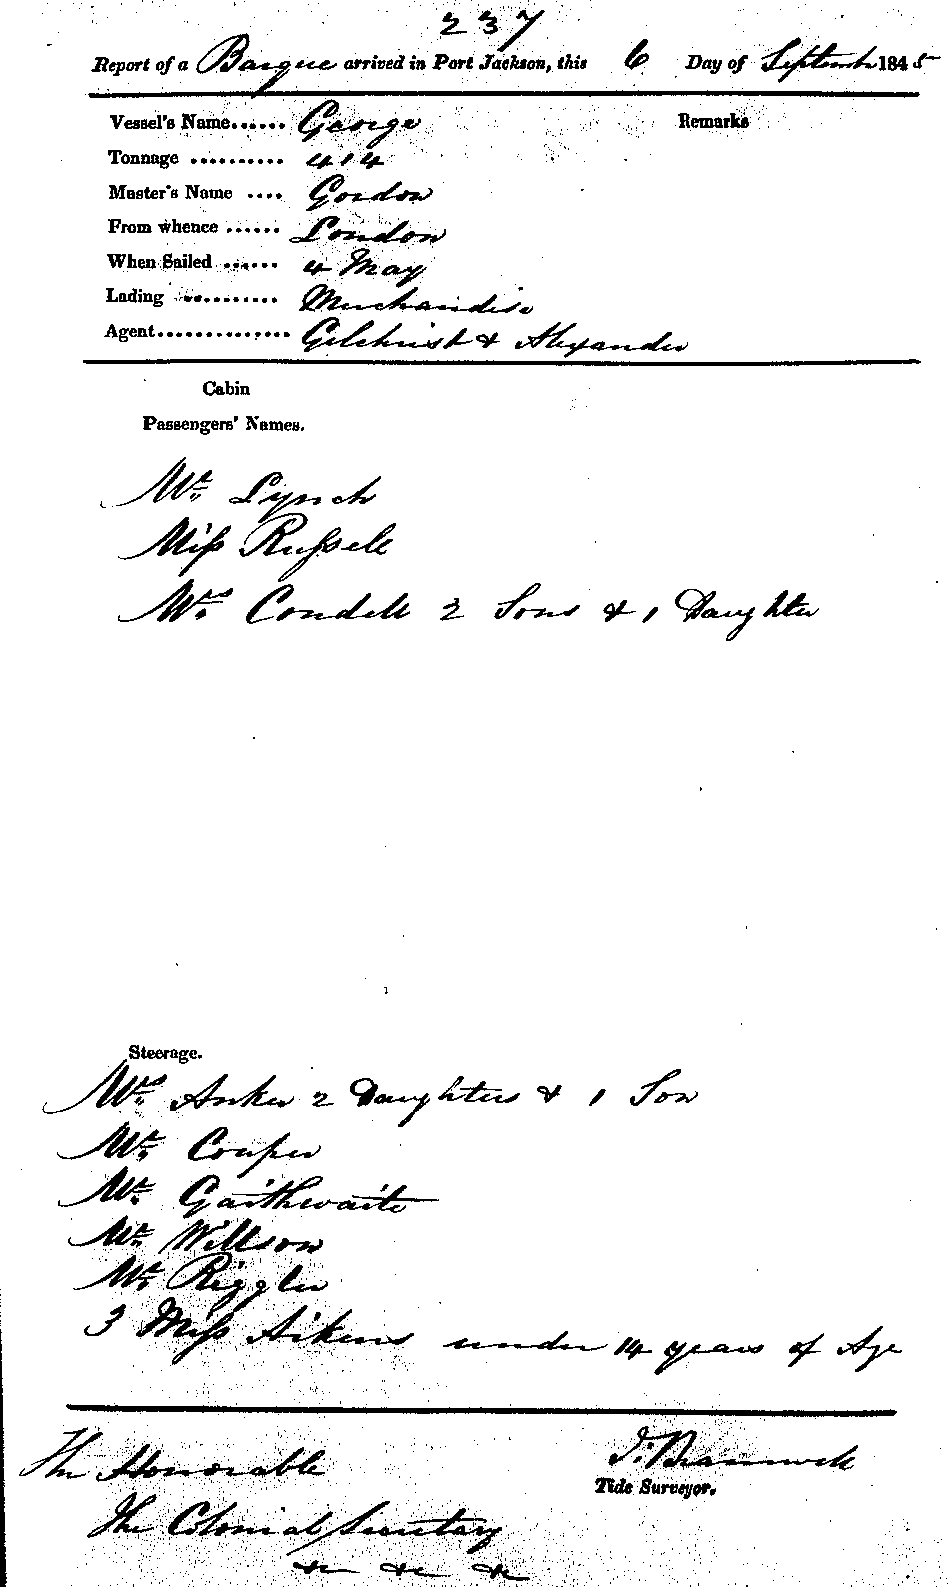 237
Report of a Barque arrived in Port Jackson, this 6 Day of September 1845
Vessel's Name...... George Remarks
Tonnage .......... 414
Master's Name .... Gordon
From whence ...... London
When Sailed ...... 4 May
Lading .......... Merchandise
Agent.............. Gilchrist & Alexander
Cabin
Passengers' Names.
Mr. Lynch
Miss Russell
Mrs. Condell 2 Sons & 1 Daughter
Steerage.
Mrs. Anker 2 Daughters & 1 Son
Mr. Couper
Mr. Gaithwaite
Mr. Willson
Mr. Riggler
3 Miss Aikens under 14 years of Age
The Honorable J: Bramwell
Tide Surveyor.
The Colonial Secretary
&c &c &c